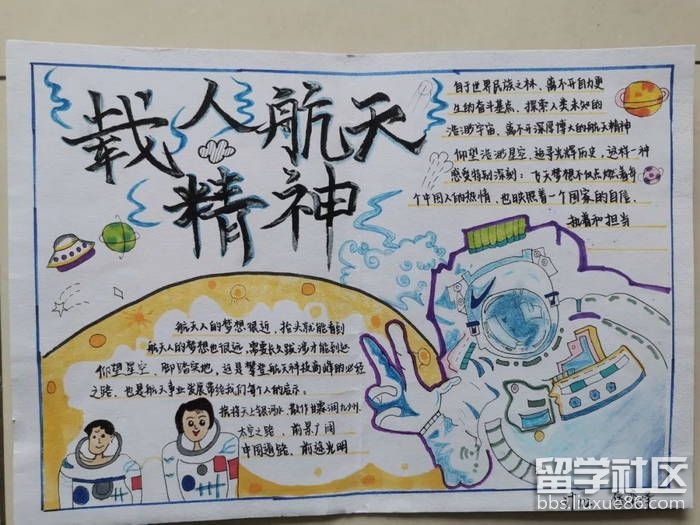 载人航天
精神
自于世界民族之林,离不开自力更
生的奋斗基点、探索人类未知的
浩渺宇宙、离不开深厚博大的航天精神
仰望浩渺星空,追寻光辉历史,这样一种
感受特别深刻:飞天梦想不仅点燃着每
个中国人的热情,也映照着一个国家的自信、
执着和担当
航天人的梦想很近,抬头就能看到
航天人的梦想也很远,需要长久跋涉才能到达
仰望星空、脚踏实地,这是攀登航天科技高峰的必经
之路,也是航天事业发展带给我们每个人的启示。
摘将天上银河水 散作甘霖润九州
太空之路,前景广阔
中国道路,前途光明
留学社区
bbs.liuxue86.com